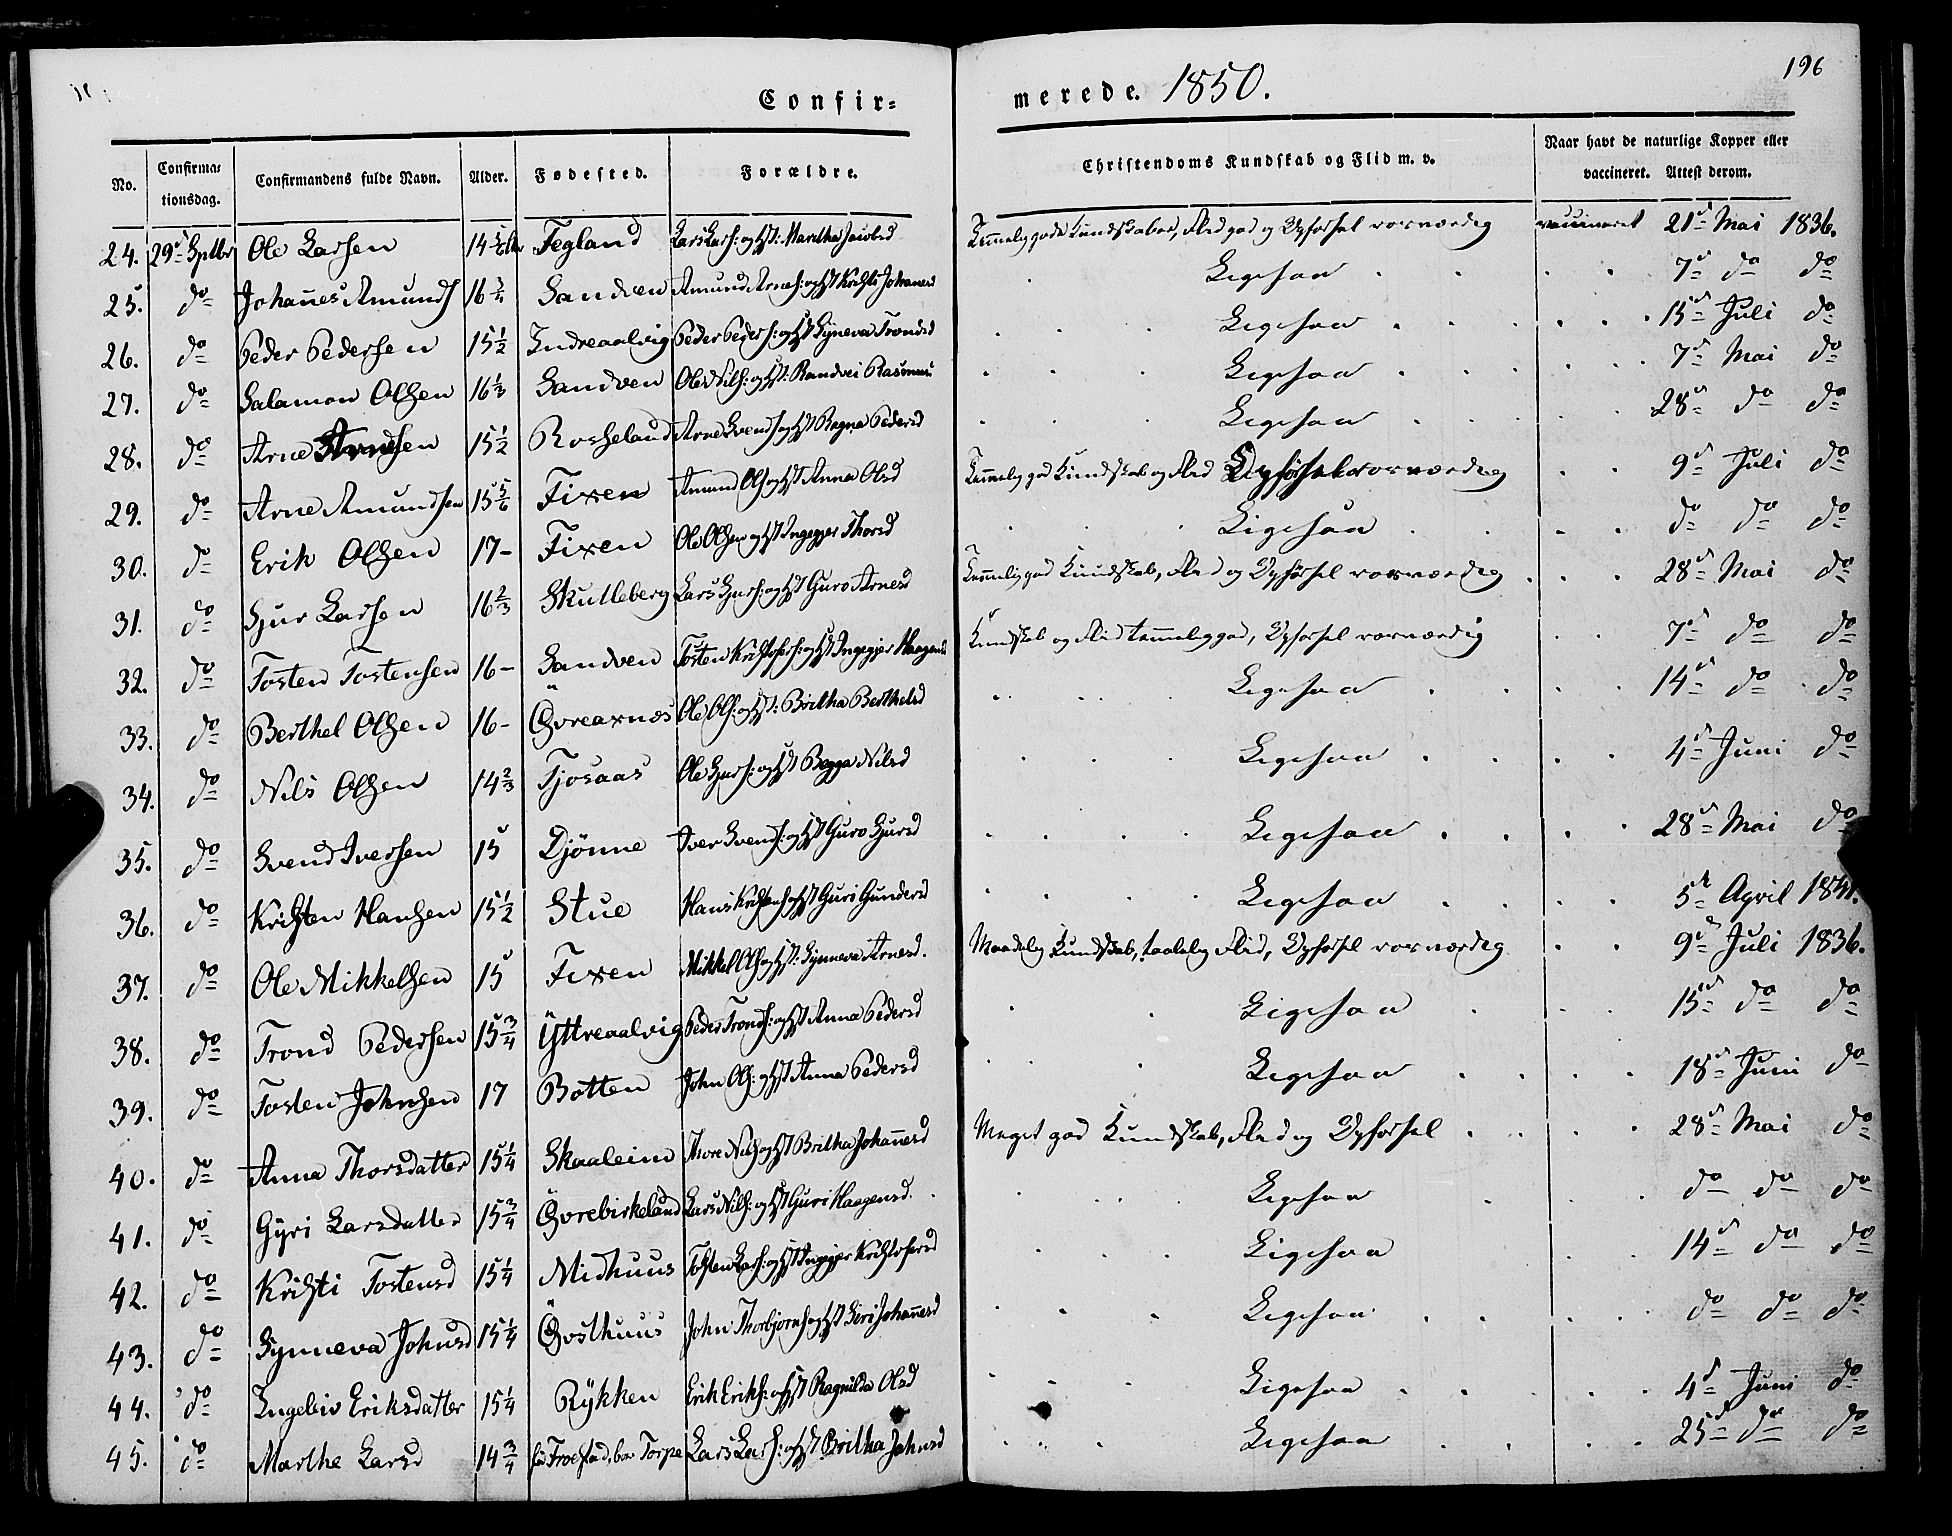 Confir-
merede. 1850.
196
No. Confirma-tionsdag. Confirmandens fulde Navn. Alder. Fødested. Forældre. Christendoms Kundskab og Flid m. v. Naar havt de naturlige Kopper eller vaccineret. Attest derom.
24. 29d Sptbr Ole Larsen 14 Tegland Lars Lars: og H: Martha Jacobsd Temmelig gode Kundskaber, Flid god og Opførsel rosværdig vaccineret 21d Mai 1836.
25. do Johannes Amunds 16 3/4 Sandven Amund Arnes: og H Kristi Johannesd Ligesaa 7d do do
26. do Peder Pedersen 15 1/2 Indreaalvig Peder Peders: og H Synneva Trondsd Ligesaa 15d Juli do
27. do Salamon Olsen 16 1/3 Sandven Ole Nils: og H: Randvei Rasmus: Ligesaa 7d Mai do
28. do Arne Arnesen 15 1/2 Rosseland Arne Svends og H Ragna Pedersd Ligesaa 28d do do
29. do Arne Amundsen 15 5/6 Fixen Amund Ols og H Anna Olsd Temmelig god Kundskab og Flid Opførsel rosværdig 9d Juli do
30. do Erik Olsen 17 - Fixen Ole Olsen og H Ingegjer Thorsd Ligesaa do do do
31. do Sjur Larsen 16 2/3 Skutleberg Lars Sjurs: og H Guro Arnesd Temmelig god Kundskab, Flid og Opførsel rosværdig 28d Mai do
32. do Tosten Tostensen 16 - Sandven Tosten Kristofers: og H Ingegjer Haagensd Kundskab og Flid temmelig god, Opførsel rosværdig 7d do do
33. do Berthel Olsen 16 - Øvreaxnæs Ole Ols: og H: Britha Berthelsd Ligesaa 14d do do
34. do Nils Olsen 14 2/3 Tjosaas Ole Sjurs: og H Begga Nilsd Ligesaa 4d Juni do
35. do Svend Iversen 15 Djønne Iver Svends: og H Guro Sjursd Ligesaa 28d Mai do
36. do Kristen Hansen 15 1/2 Stue Hans Kristens og H Guri Gundersd Ligesaa 5t April 1841.
37. do Ole Mikkelsen 15 Fixen Mikkel Ols og H: Synneva Arnesd. Maadelig Kundskab, taalelig Flid, Opførsel rosværdig 9d Juli 1836.
38. do Trond Pedersen 15 3/4 Yttreaalvig Peder Tronds: og H Anna Pedersd Ligesaa 15d do do
39. do Tosten Johnsen 17 Botten John Ols: og H Anna Pedersd Ligesaa 18d Juni do
40. do Anna Thorsdatter 15 1/4 Skaaleim Thore Nils og H Britha Johannesd Meget god Kundskab, Flid og Opførsel 28d Mai do
41. do Gyri Larsdatter 15 3/4 Øvrebirkeland Lars Nils: og H Guri Haagensd. Ligesaa do do do
42. do Kristi Tostensd 15 1/4 Midhuus Tosten Lars: og H Ingegjer Kristofersd Ligesaa 14d do do
43. do Synneva Johnsd 15 1/4 Østhuus John Thorbjørns og H Siri Johannesd Ligesaa do do do
44. do Ingeleiv Eriksdatter 15 1/4 Rykken Erik Eriks: og H Ragnilda Olsd Ligesaa 4d Juni do
45. do Marthe Larsd 14 3/4 Torpe Lars Lars: og H Britha Johnsd Ligesaa 25d do do